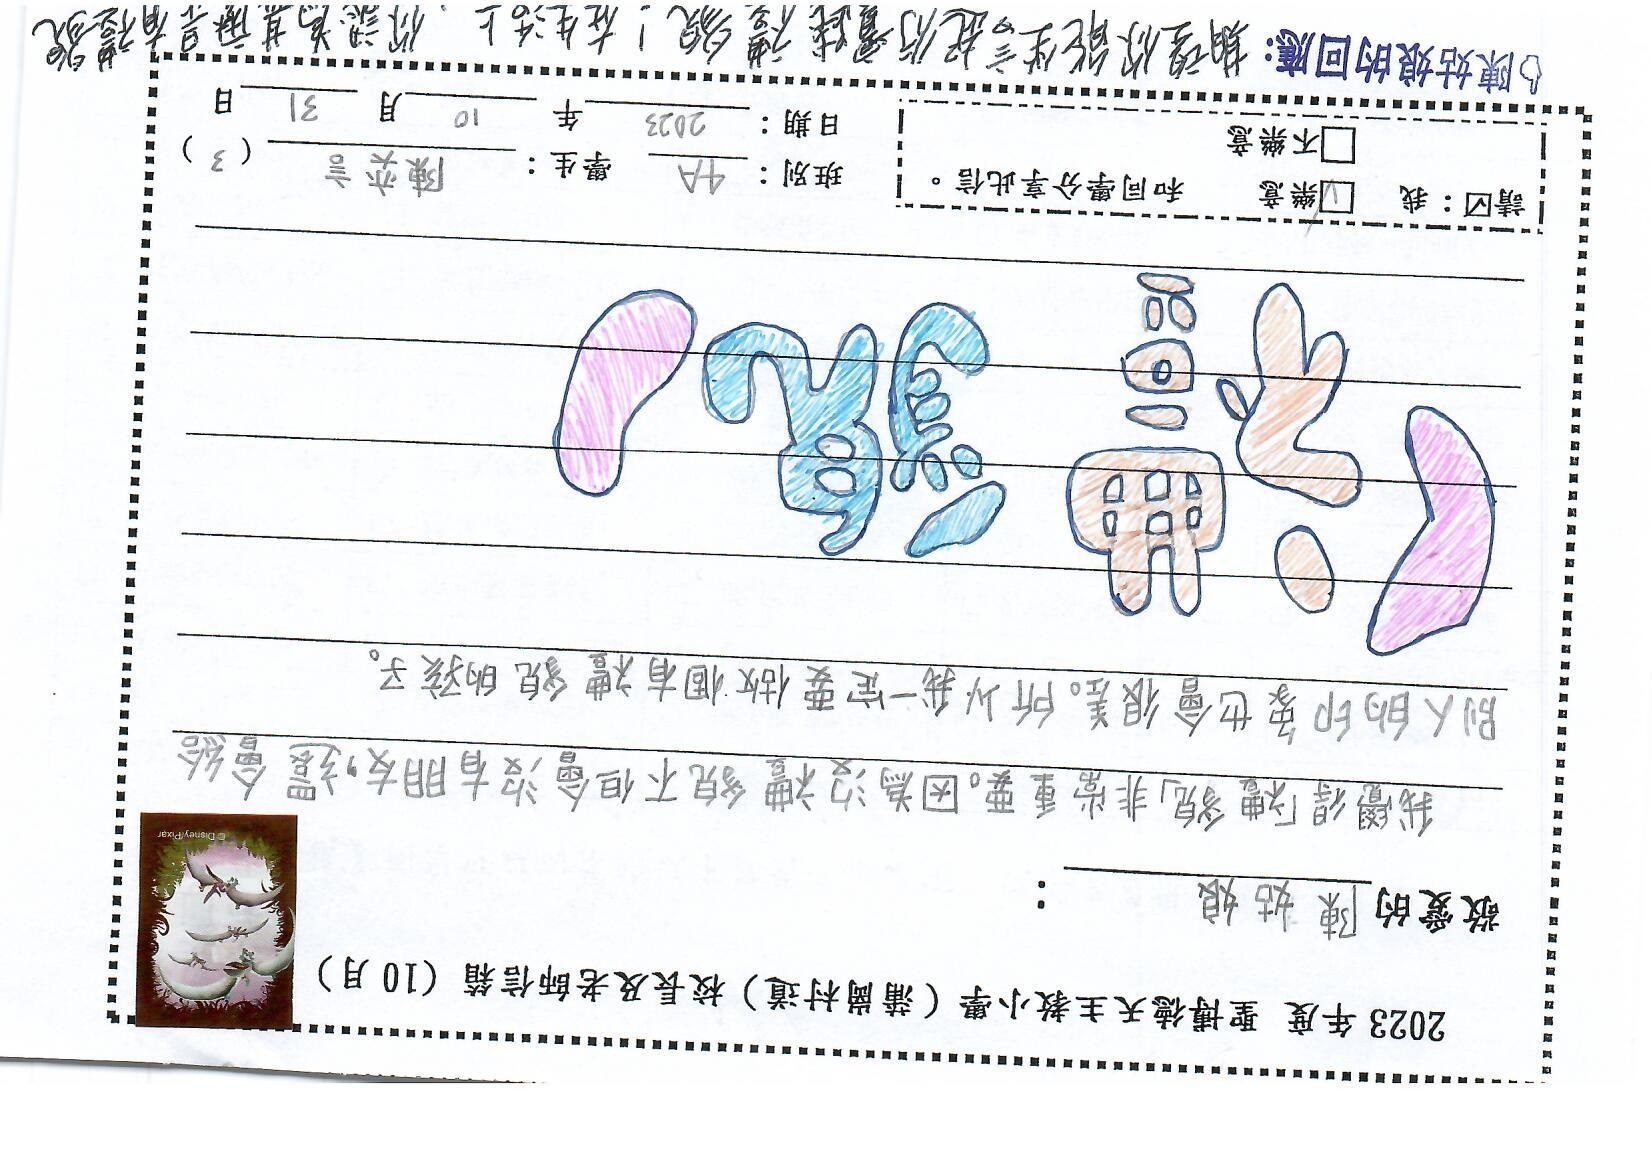 2023 年度 聖博德天主教小學（蒲崗村道）校長及老師信箱（10 月）
© Disney/Pixar
敬愛的 陳姑娘 ：
我覺得「禮貌」非常重要。因為沒禮貌不但會沒有朋友，還會給
別人的印象也會很差。所以我一定要做個有禮貌的孩子。
「禮貌」
請☑：我 ☑樂意 和同學分享此信。
□不樂意
班別： 4A 學生： 陳奕言 ( 3 )
日期： 2023 年 10 月 31 日
陳姑娘的回應：期望你能坐言起行實踐禮貌！在生活上，你認為甚麼是有禮貌